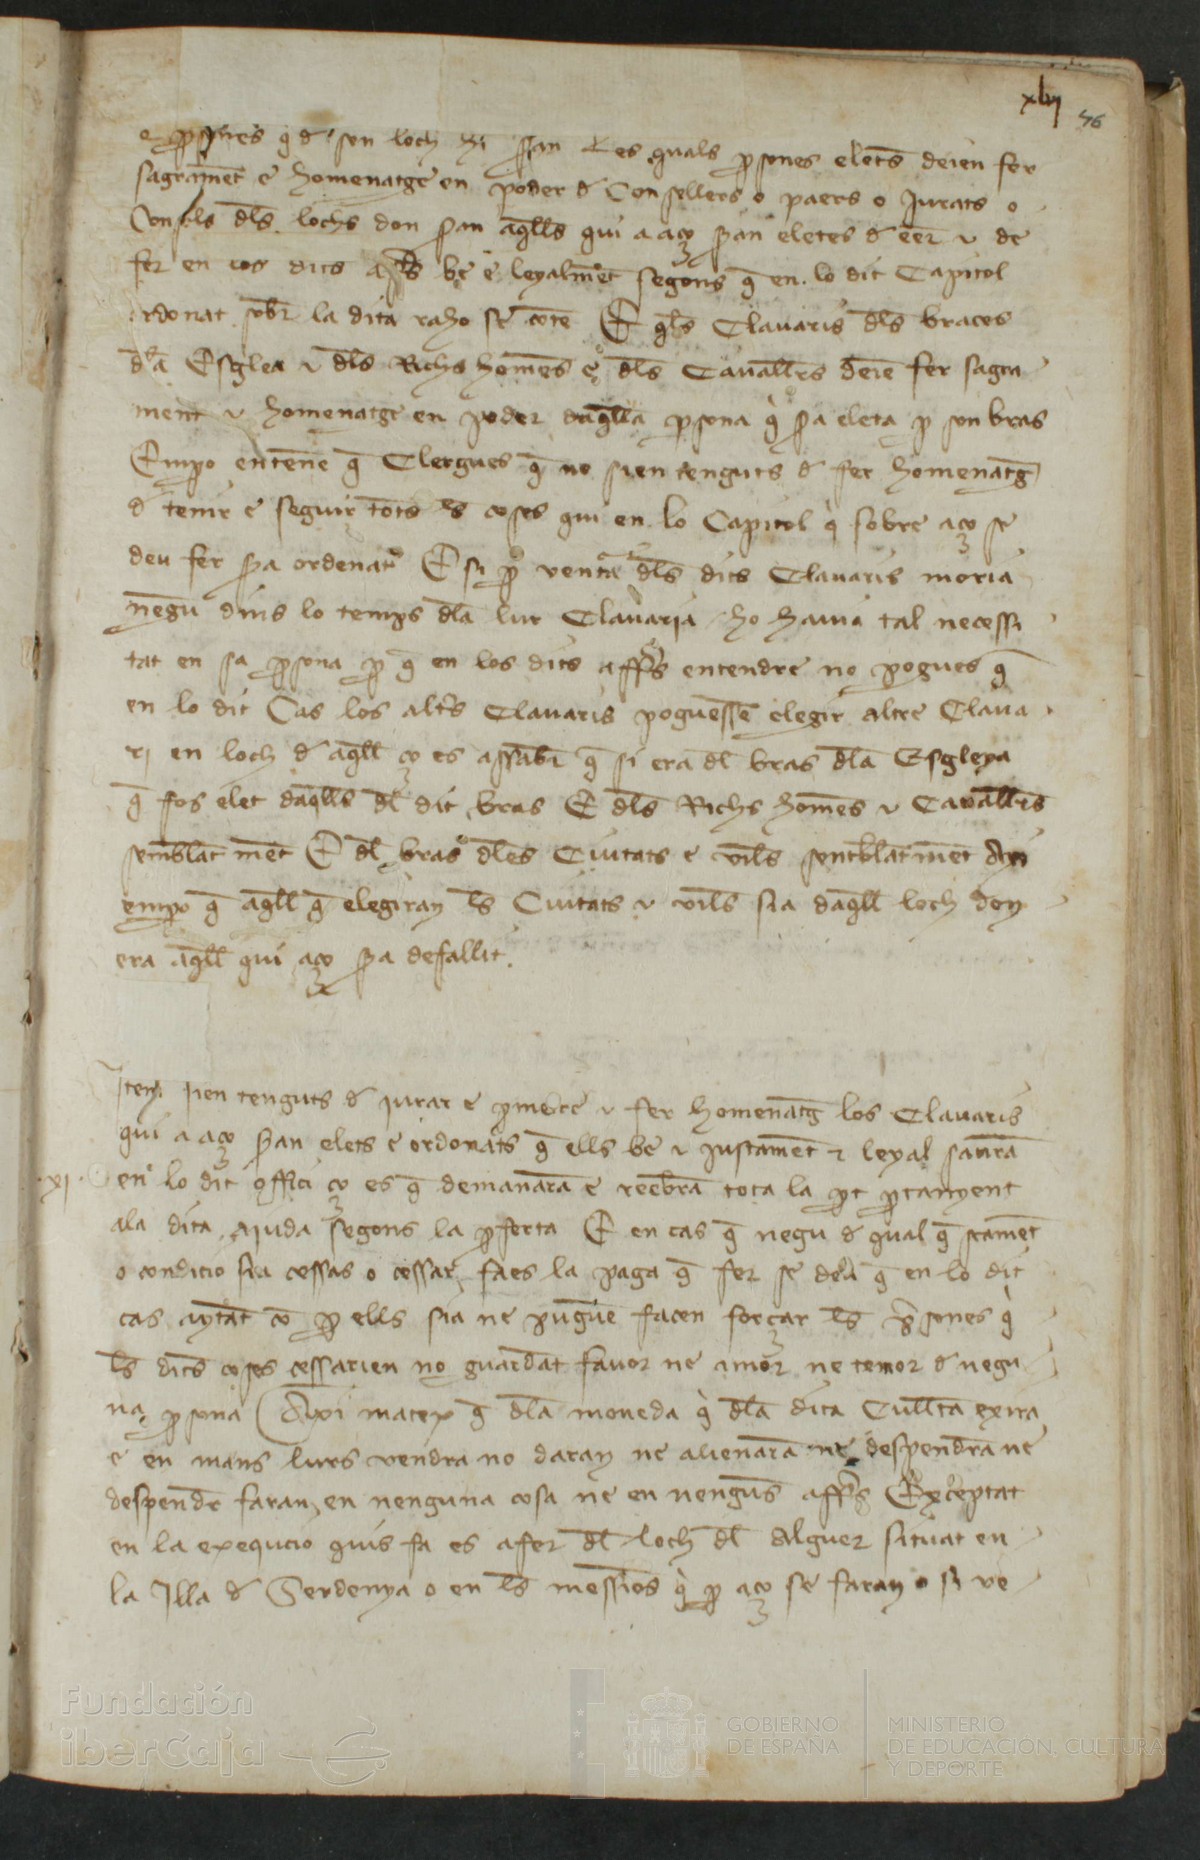 xlvj 46
e p̱sones q̄ d son loch hi s̄an Les quals p̱sones eletes deien fer
sagramēt e homenatge en poder d Consellers o paers o Jurats o
Consols dl̄s lochs don s̄an aq̄lls qui a aço s̄an eletes d eēr e de
fer en los dits aff̄s bē e leyalmēt segons q̄ en lo dit Capitol
ordonat sobr̄ la dita raho se cōte E q̄ls Clauaris dl̄s braces
dl̄a Esglea e dl̄s Richs homēs e dl̄s Cauall̄rs deiē fer sagra
ment e homenatge en poder daq̄lla p̱sona q̄ s̄a eleta p̱ son bras
Emp̱o entenē q̄ Clergues q̄ no sien tenguts d fer homenatḡ
d tenir e seguir tots l̄s coses qui en lo Capitol q̄ sobre aço se
deu fer s̄a ordenat E si p̱ ventā dl̄s dits Clauaris moria
negū dins lo temps dl̄a lur Clauaria ho hauia tal necessi
tat en sa p̱sona p̱ q̄ en los dits aff̄s entendre no pogues q̄
en lo dit Cas los altr̄s Clauaris poguessē elegir altre Claua
rj en loch d aq̄ll ço es assab̄r q̄ si era dl̄ bras dl̄a Esgleya
q̄ fos elet daq̄lls dl̄ dit bras E dl̄s Richs homēs e Cauall̄rs
semblāt mēt E dl̄ bras dl̄es Ciutats e vil̄s semblāt mēt Axi
emp̱o q̄ aq̄ll q̄ elegiran l̄s Ciutats e vil̄s sia daq̄ll loch don
era aq̄ll qui aço s̄a defallit.
Item sien tenguts d jurar e p̱metre e fer homenatḡ los Clauaris
qui a aço s̄an elets e ordonats q̄ ells bē e justamēt e leyal saurā
xj en lo dit offici ço es q̄ demanarā e reebrā tota la p̱t p̱tanyent
ala dita ajuda segons la p̱ferta E en cas q̄ negu d qual q̄ stamēt
o condicio sia cessas o cessar faes la paga q̄ fer se deia q̄ en lo dit
cas aytāt cō p̱ ells sia ne puguē facen forçar l̄s p̱sones q̄
l̄s dits coses cessarien no guardāt fauor ne amor ne temor d negu
na p̱sona Axi matex q̄ dl̄a moneda q̄ dl̄a dita Cull̄ta exira
e en mans lurs vendra no daran ne alienarā ne despendrā ne
despendr̄ faran en nenguna cosa ne en nengūs aff̄s Exceptat
en la exequcio quis fa es afer dl̄ loch dl̄ Alguer situat en
la Illa d Serdenya o en l̄s messions q̄ p̱ aço se faran o si ve
Fundación
iberCaja
GOBIERNO
DE ESPAÑA
MINISTERIO
DE EDUCACIÓN, CULTURA
Y DEPORTE